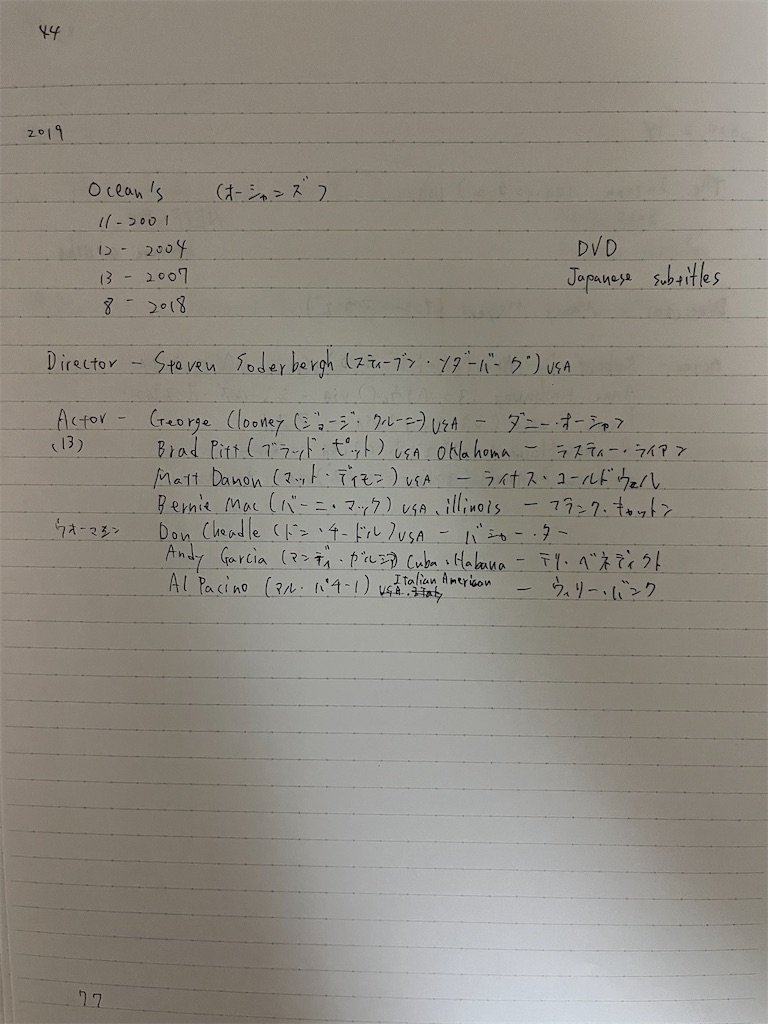 44
2019
Ocean's (オーシャンズ)
11 - 2001
12 - 2004
13 - 2007
8 - 2018
DVD
Japanese subtitles
Director - Steven Soderbergh (スティーブン・ソダーバーグ) USA
Actor - George Clooney (ジョージ・クルーニー) USA - ダニー・オーシャン
(13) Brad Pitt (ブラッド・ピット) USA. Oklahoma - ラスティー・ライアン
Matt Damon (マット・デイモン) USA - ライナス・コールドウェル
Bernie Mac (バーニ・マック) USA. illinois - フランク・キャットン
ウォーマシン Don Cheadle (ドン・チードル) USA - バシャー・ター
Andy Garcia (アンディ・ガルシア) Cuba. Habana - テリー・ベネディクト
Al Pacino (アル・パチーノ) Italian American - ウィリー・バンク
77